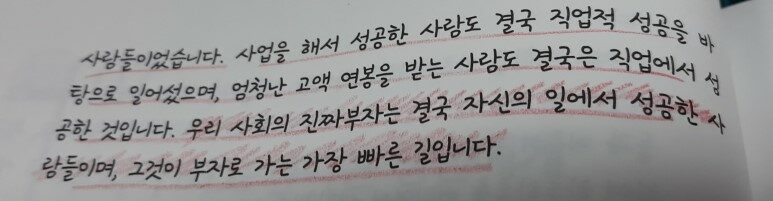 사람들이었습니다. 사업을 해서 성공한 사람도 결국 직업적 성공을 바
탕으로 일어섰으며, 엄청난 고액 연봉을 받는 사람도 결국은 직업에서 성
공한 것입니다. 우리 사회의 진짜부자는 결국 자신의 일에서 성공한 사
람들이며, 그것이 부자로 가는 가장 빠른 길입니다.